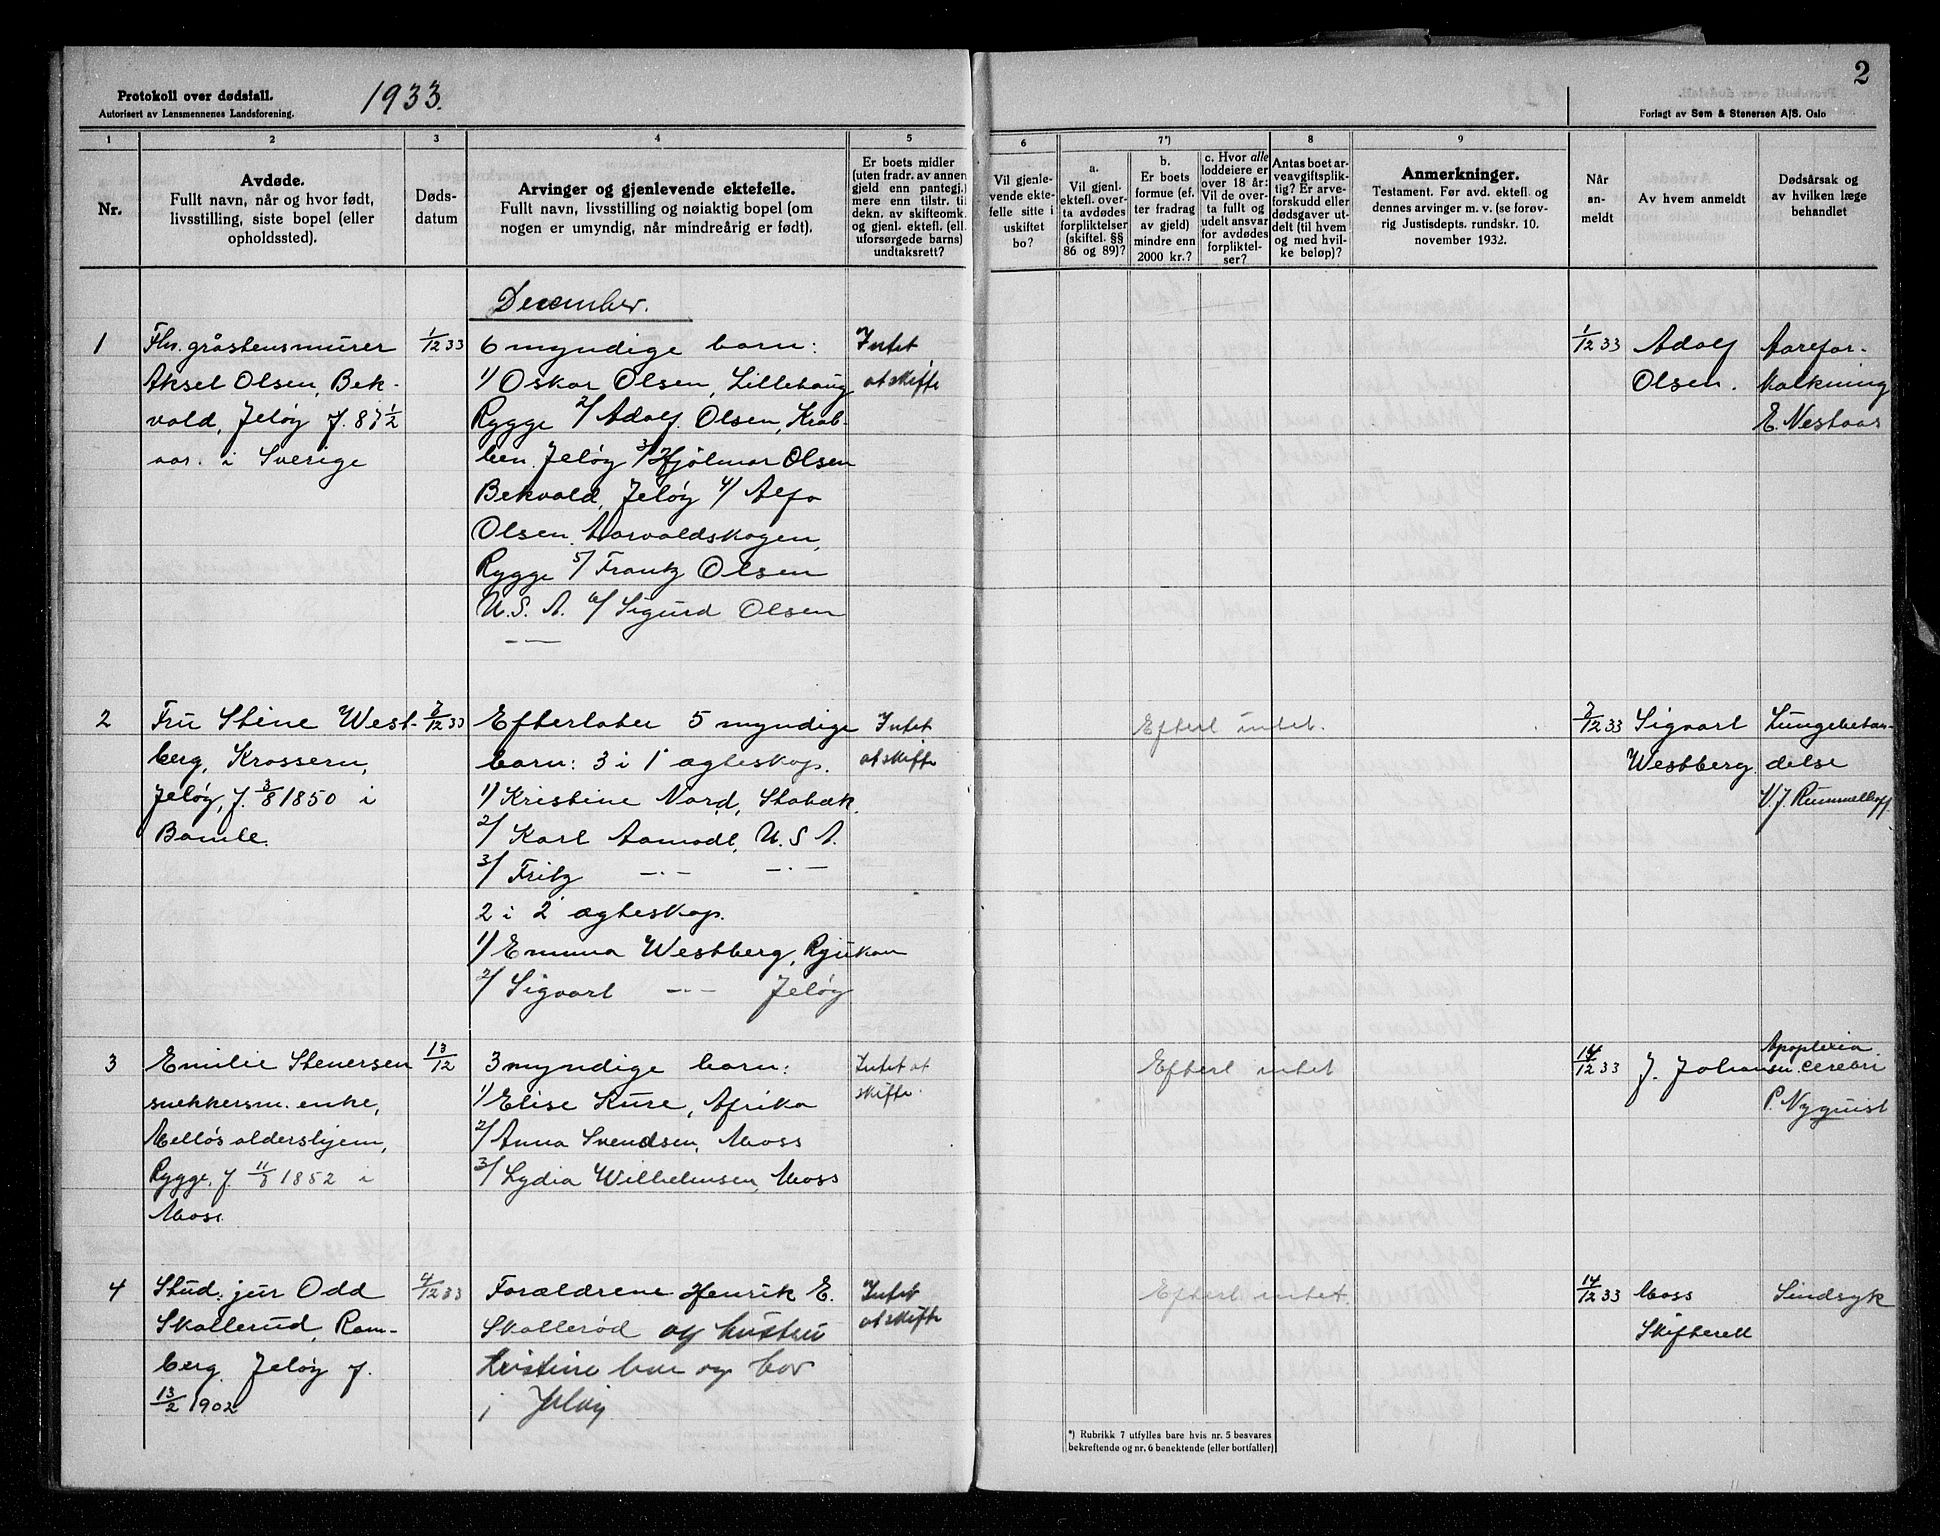 Protokoll over dødsfall.
Autorisert av Lensmennenes Landsforening.
1933.
2
Forlagt av Sem & Stenersen A/S. Oslo
1 2 3 4 5 6 7*) 8 9
Nr.
Avdøde.
Fullt navn, når og hvor født,
livsstilling, siste bopel (eller
opholdssted).
Døds-
datum
Arvinger og gjenlevende ektefelle.
Fullt navn, livsstilling og nøiaktig bopel (om
nogen er umyndig, når mindreårig er født).
Er boets midler
(uten fradr. av annen
gjeld enn pantegj.)
mere enn tilstr. til
dekn. av skifteomk.
og gjenl. ektef. (ell.
uforsørgede barns)
undtaksrett?
Vil gjenle-
vende ekte-
felle sitte i
uskiftet
bo?
a.
Vil gjenl.
ektefl. over-
ta avdødes
forpliktelser
(skiftel. §§
86 og 89)?
b.
Er boets
formue (ef-
ter fradrag
av gjeld)
mindre enn
2000 kr.?
c. Hvor alle
loddeiere er
over 18 år:
Vil de over-
ta fullt og
udelt ansvar
for avdødes
forpliktel-
ser?
Antas boet ar-
veavgiftsplik-
tig? Er arve-
forskudd eller
dødsgaver ut-
delt (til hvem
og med hvil-
ke beløp)?
Anmerkninger.
Testament. Før avd. ektefl. og
dennes arvinger m. v. (se forøv-
rig Justisdepts. rundskr. 10.
november 1932.
Når
an-
meldt
Av hvem anmeldt
Dødsårsak og
av hvilken læge
behandlet
December.
1
Fhv. gråstensmurer
Aksel Olsen, Bek-
vold, Jeløy f. 87 1/2
aar. i Sverige
1/12 33
6 myndige barn:
1/ Oskar Olsen, Lillehaug
Rygge 2/ Adolf Olsen, Krab-
ben. Jeløy 3/ Hjalmar Olsen
Bekvold, Jeløy 4/ Alfa
Olsen, Aarvoldskogen,
Rygge 5/ Frantz Olsen
U.S.A. 6/ Sigurd Olsen
— —
Intet
at skifte
1/12 33
Adolf
Olsen.
Aarefor-
kalkning
E. Nestaas
2
Fru Stine West-
berg, Krossern,
Jeløy, f. 3/8 1850 i
Bamle.
2/12 33
Efterlater 5 myndige
barn: 3 i 1' ægteskap.
1/ Kristine Nord, Stabæk
2/ Karl Aamodt, U.S.A.
3/ Fritz —·— —·—
2 i 2' ægteskap.
1/ Emma Westberg, Rjukan
2/ Sigvart —·— Jeløy
Intet
at skifte
Efterl intet.
2/12 33
Sigvart
Westberg.
Lungebetæn-
delse
V. J. Rummelhoff
3
Emilie Stenersen
snekkersm. enke,
Melløs aldershjem,
Rygge, f. 11/8 1852 i
Moss.
13/12
3 myndige barn:
1/ Elise Kure, Afrika
2/ Anna Svendsen, Moss
3/ Lydia Wilhelmsen, Moss
Intet at
skifte.
Efterl intet
14/12 33
J. Johansen.
Apoplexia
cerebri
P. Nyquist
4
Stud. jur Odd
Skallerud, Ram-
berg, Jeløy f.
13/2 1902
4/12 33
Forældrene Henrik E.
Skallerød og hustru
Kristine bor og bor
i Jeløy
Intet
at skifte
Efterl intet.
14/12 33
Moss
Skifterett
Sindsyk
*) Rubrikk 7 utfylles bare hvis nr. 5 besvares
bekreftende og nr. 6 benektende (eller bortfaller)